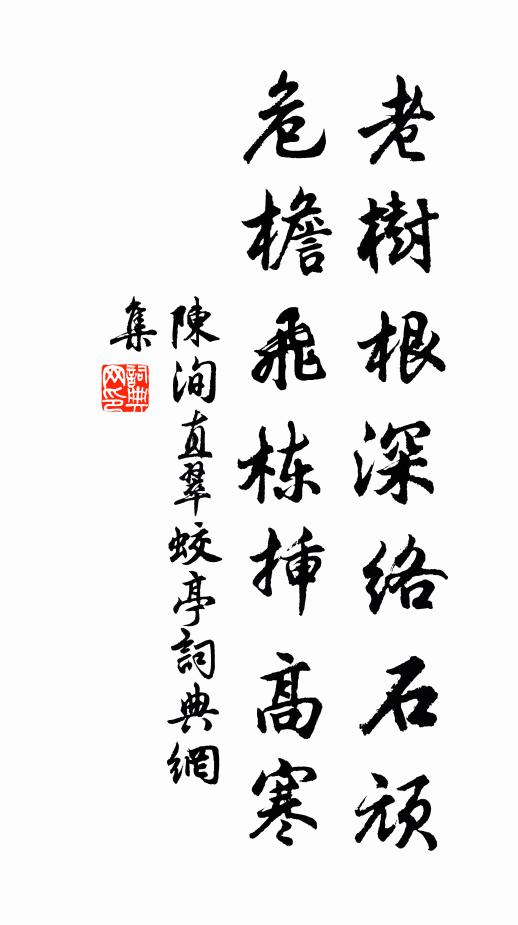 老樹根深络石頑
危檐飛栋揷高寒
陳洵直翠蛟亭詞典網
集
詞典网印